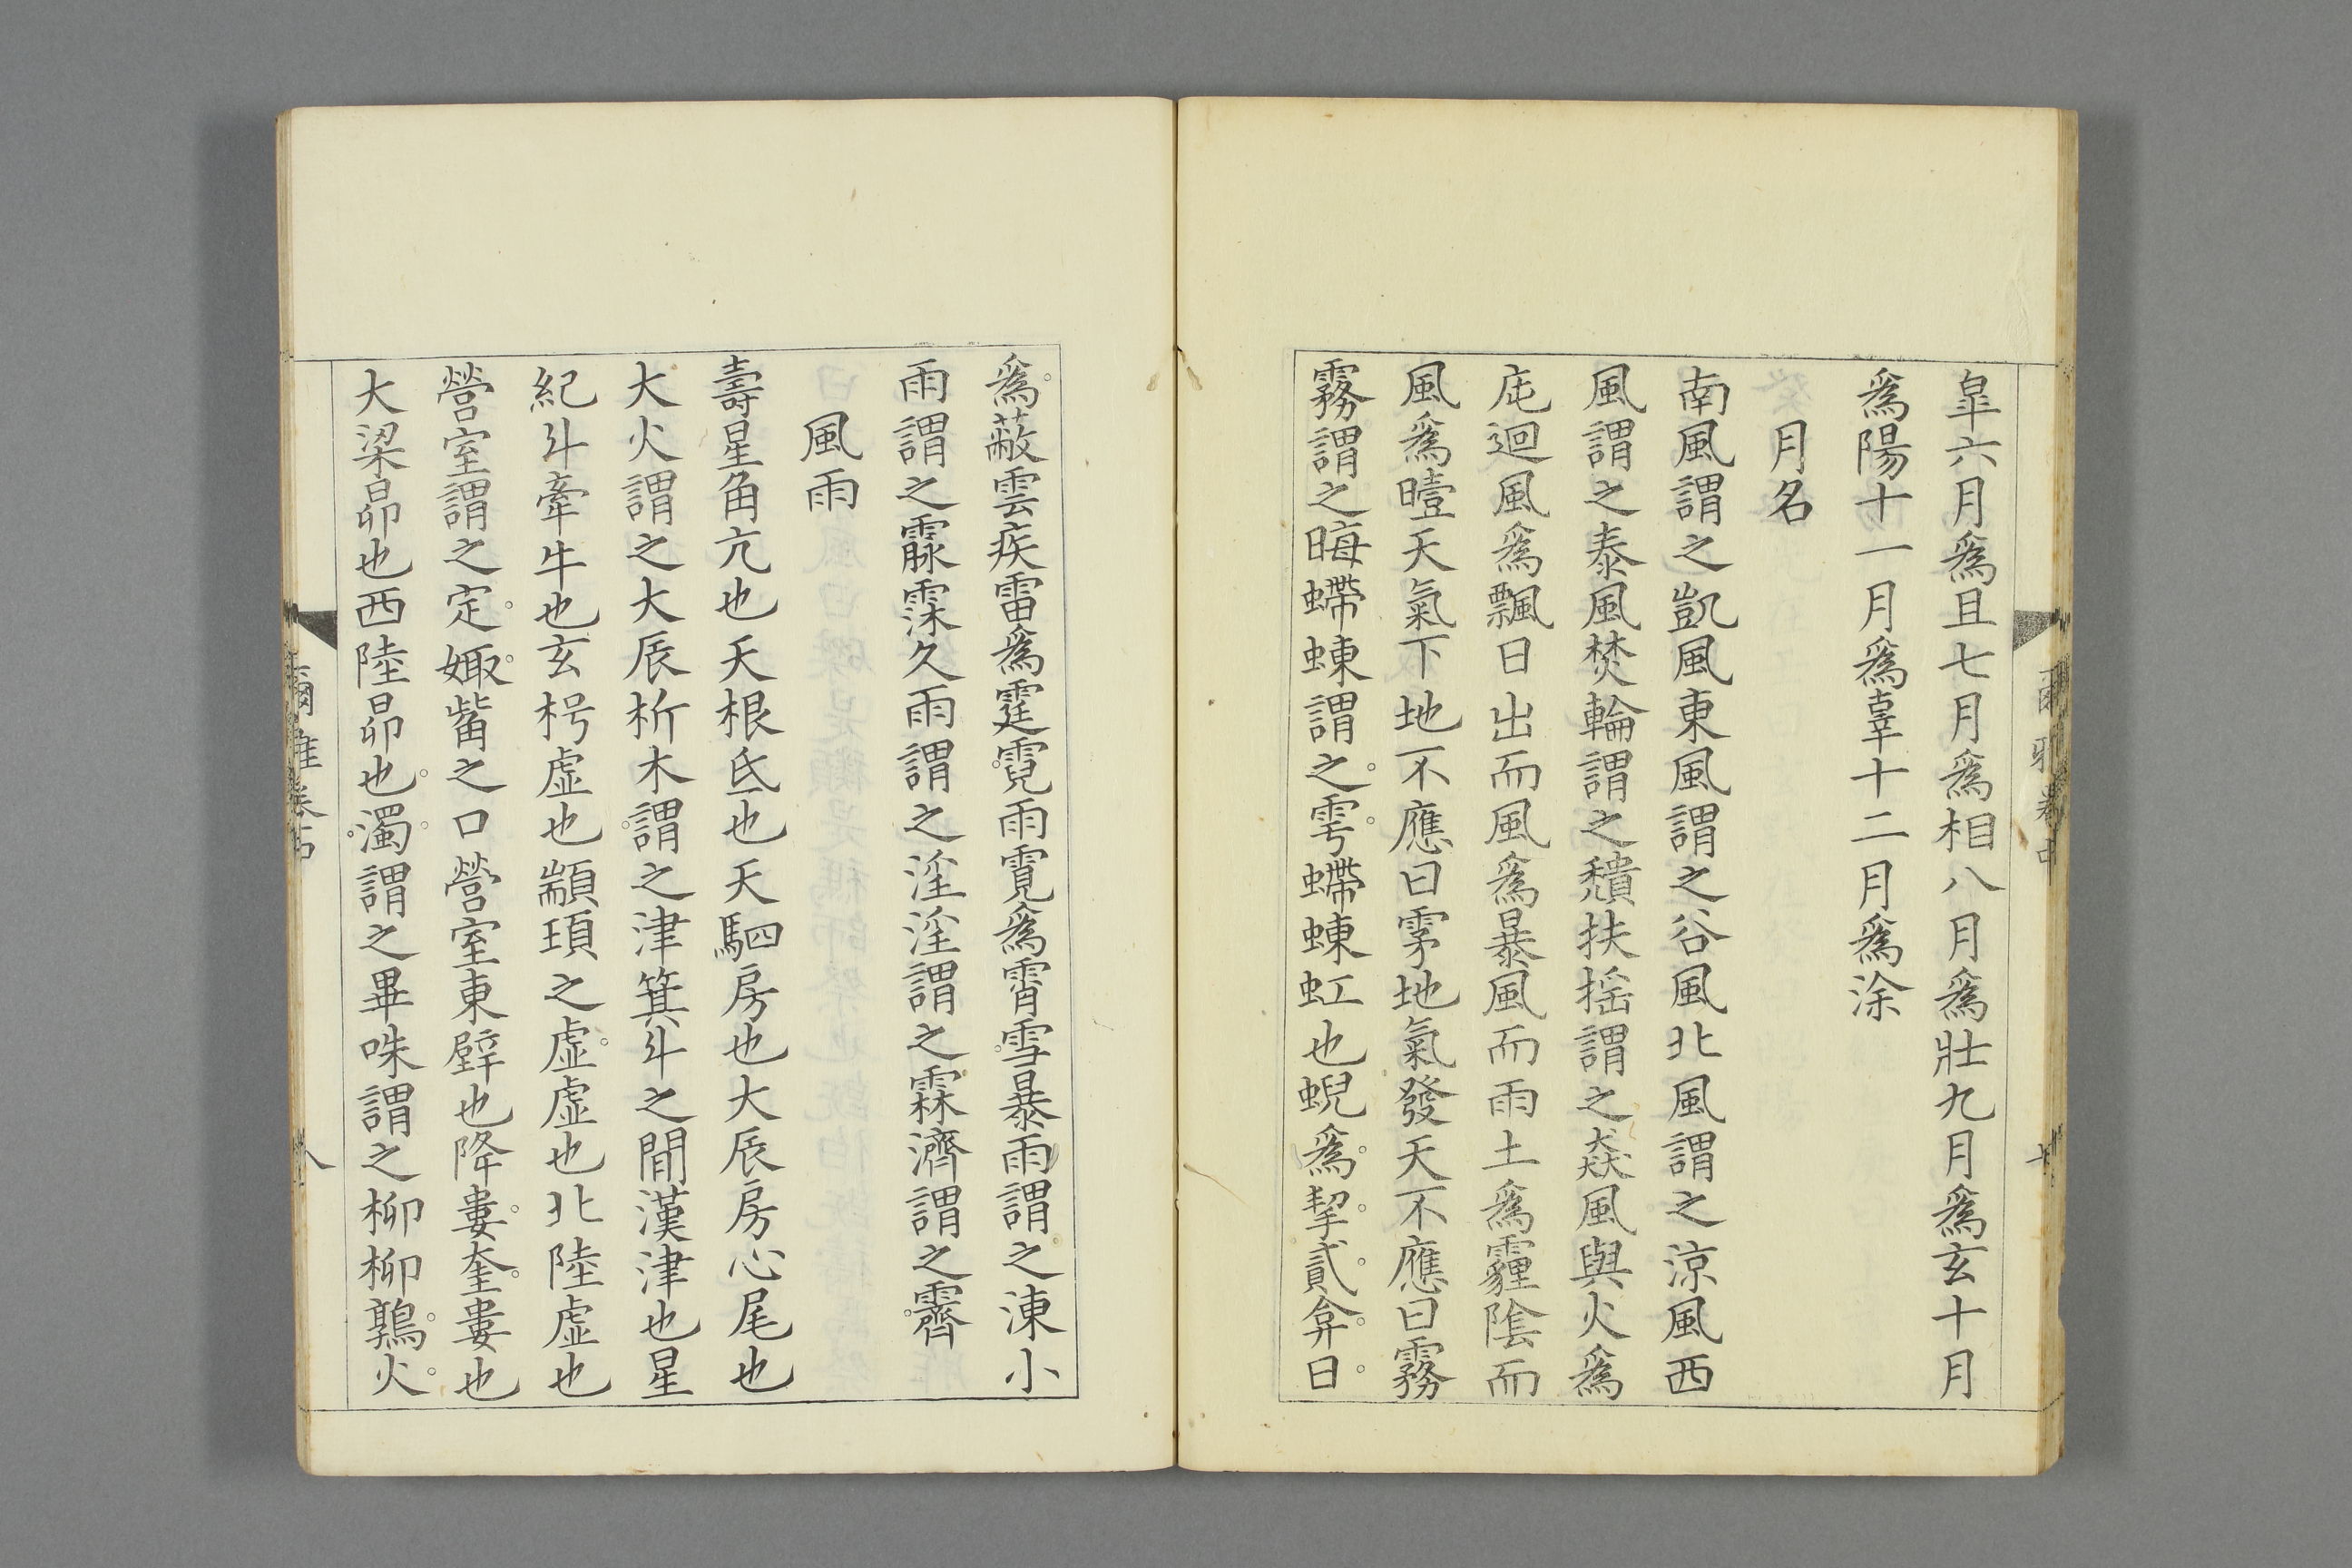 皐六月爲且七月爲相八月爲壯九月爲玄十月
爲陽十一月爲辜十二月爲涂
月名
南風謂之凱風東風謂之谷風北風謂之涼風西
風謂之泰風焚輪謂之穨扶揺謂之猋風與火爲
庉迴風爲飄日出而風爲暴風而雨土爲霾陰而
風爲曀天氣下地不應曰雺地氣發天不應曰霧
霧謂之晦螮蝀謂之雩螮蝀虹也蜺爲挈貳弇日
爲蔽雲疾雷爲霆霓雨霓爲霄雪暴雨謂之涷小
雨謂之霢霂久雨謂之淫淫謂之霖濟謂之霽
風雨
壽星角亢也天根氐也天駟房也大辰房心尾也
大火謂之大辰析木謂之津箕斗之間漢津也星
紀斗牽牛也玄枵虛也顓頊之虛虛也北陸虛也
營室謂之定娵觜之口營室東壁也降婁奎婁也
大梁昴也西陸昴也濁謂之畢咮謂之柳柳鶉火
爾雅卷中
八